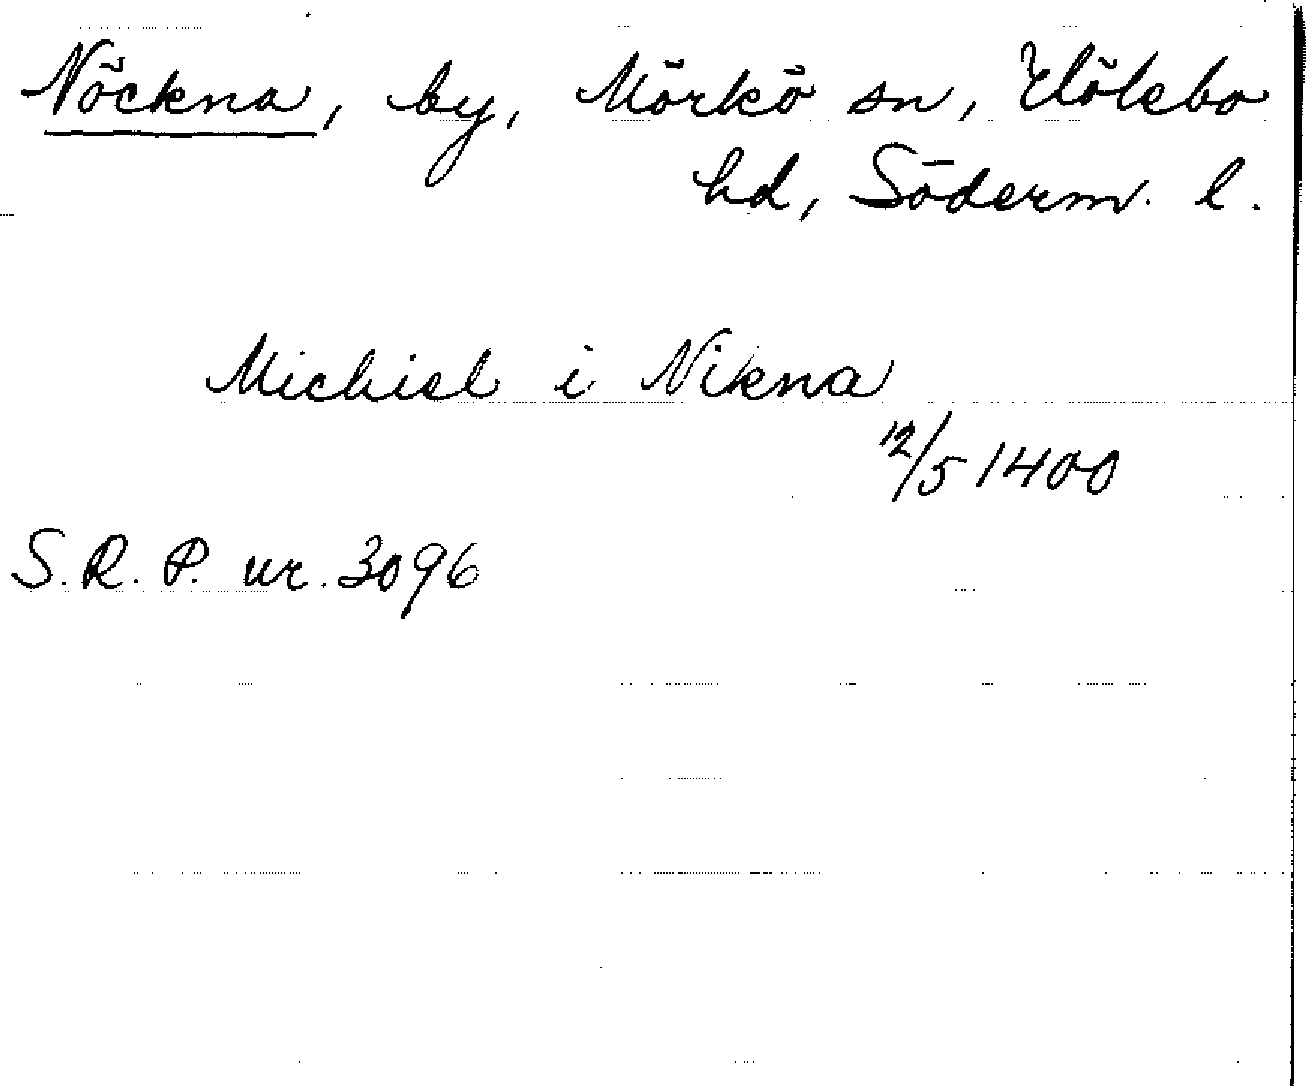 Nöckna, by, Mörkö sn, Hölebo
hd, Söderm. l.
Michiel i Nikna
12/5 1400
S.R.P. nr. 3096